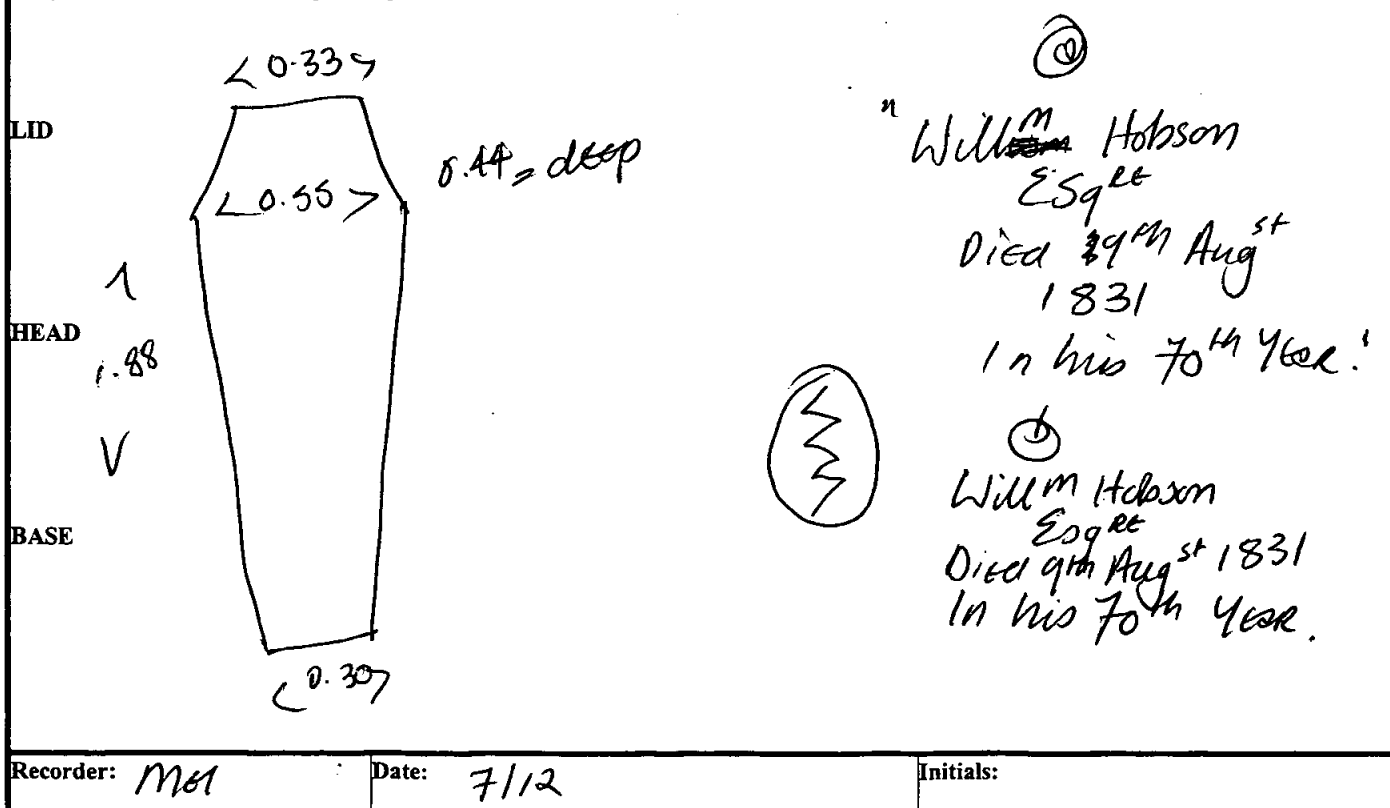 < 0.33 >
LID
0.44 = deep
< 0.55 >
HEAD
1.88
BASE
< 0.30 >
" Willm Hobson
ESqRE
Died 9th Augst
1831
In his 70th YEAR.'
Willm Hobson
EsqRE
Died 9th Augst 1831
In his 70th YEAR.
Recorder:
Date: 7/12
Initials: